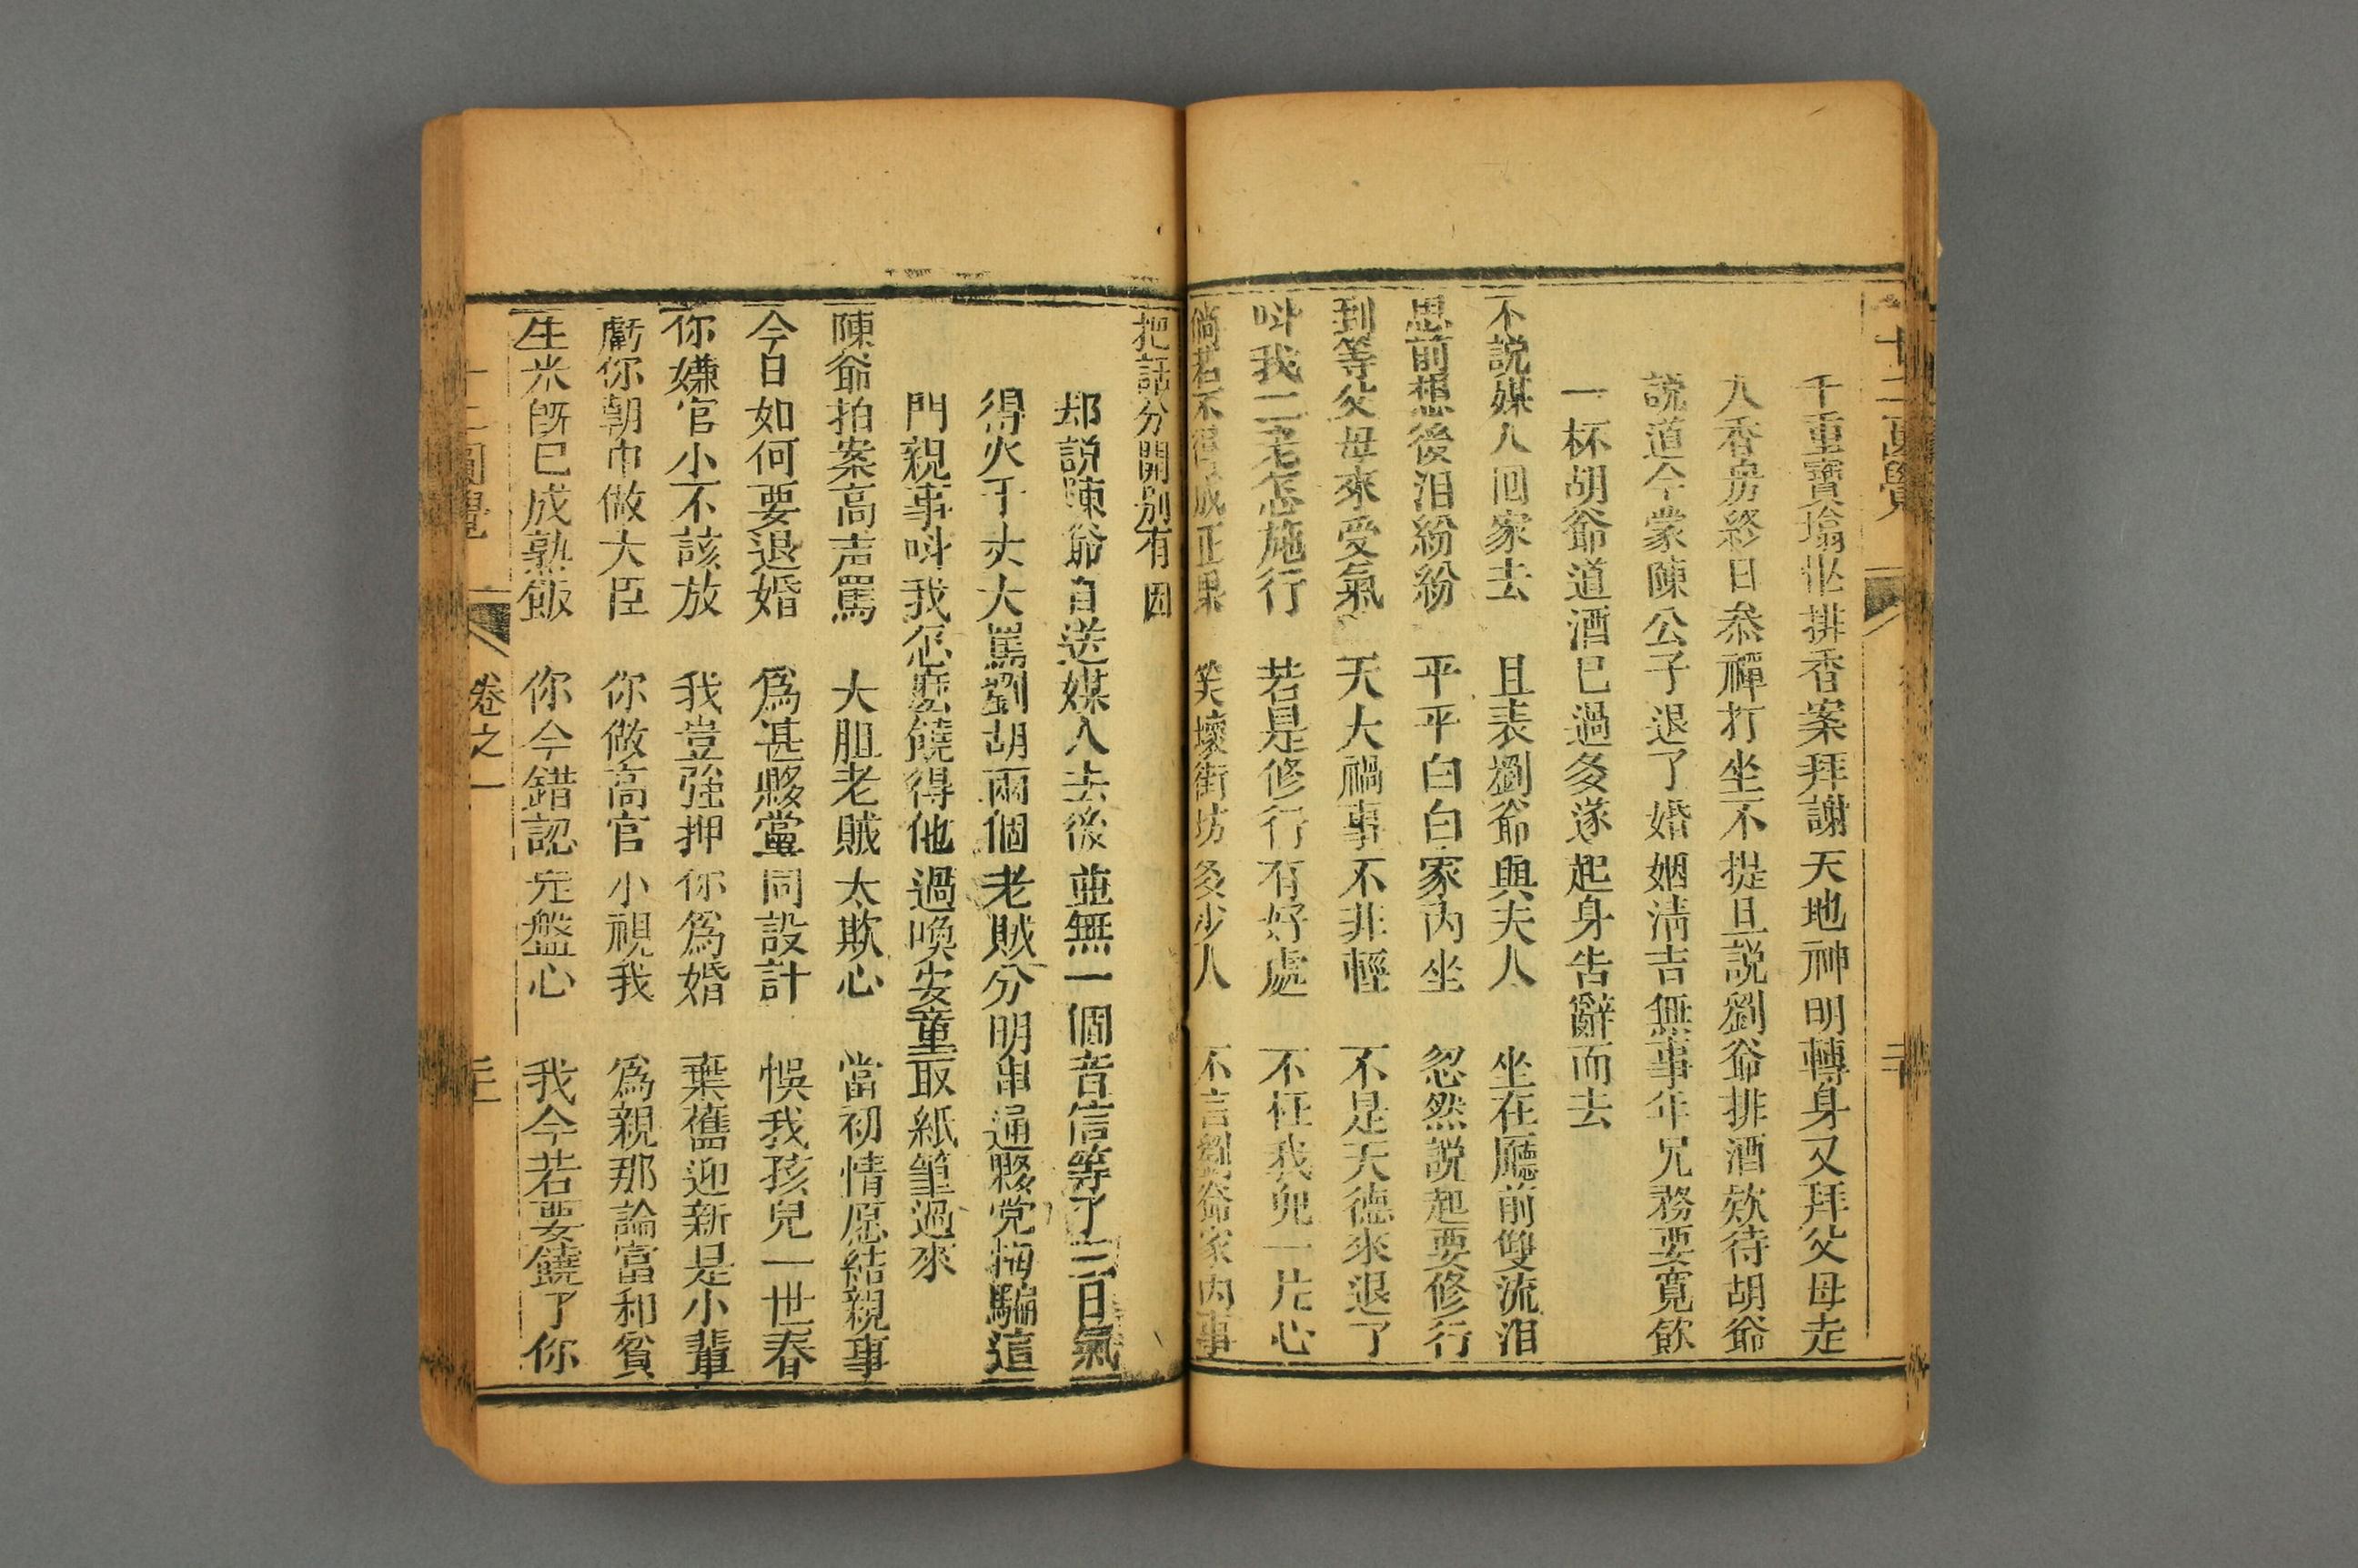 十二圓覺
千重寶塔㘴排香案拜謝天地神明轉身又拜父母走
入香房終日叅禪打坐不提且說劉爺排酒欵待胡爺
說道今蒙陳公子退了婚姻清吉無事年兄務要寬飲
一杯胡爺道酒已過多遂起身告辭而去
不說媒人回家去 且表劉爺與夫人 坐在廳前雙流泪
思前想後泪紛紛 平平白白家內坐 忽然說起要修行
到等父母來受氣 天大禍事不非輕 不是天德來退了
呌我二老怎施行 若是修行有好處 不枉我兒一片心
倘若不得成正果 笑壞街坊多少人 不言劉爺家內事
把話分開別有因
却説陳爺自送媒人去後並無一個音信等了三日氣
得火千丈大罵劉胡兩個老賊分明串通夥党掏騙這
門親事呌我怎麽饒得他過喚安童取紙筆過來
陳爺拍案高声罵 大胆老賊太欺心 當初情愿結親事
今日如何要退婚 爲甚夥黨同設計 悞我孩兒一世春
你嫌官小不該放 我豈強押你爲婚 棄舊迎新是小輩
虧你朝巾做大臣 你做高官小視我 爲親那論富和貧
生米旣已成熟飯 你今錯認定盤心 我今若要饒了你
十二圓覺 卷之一